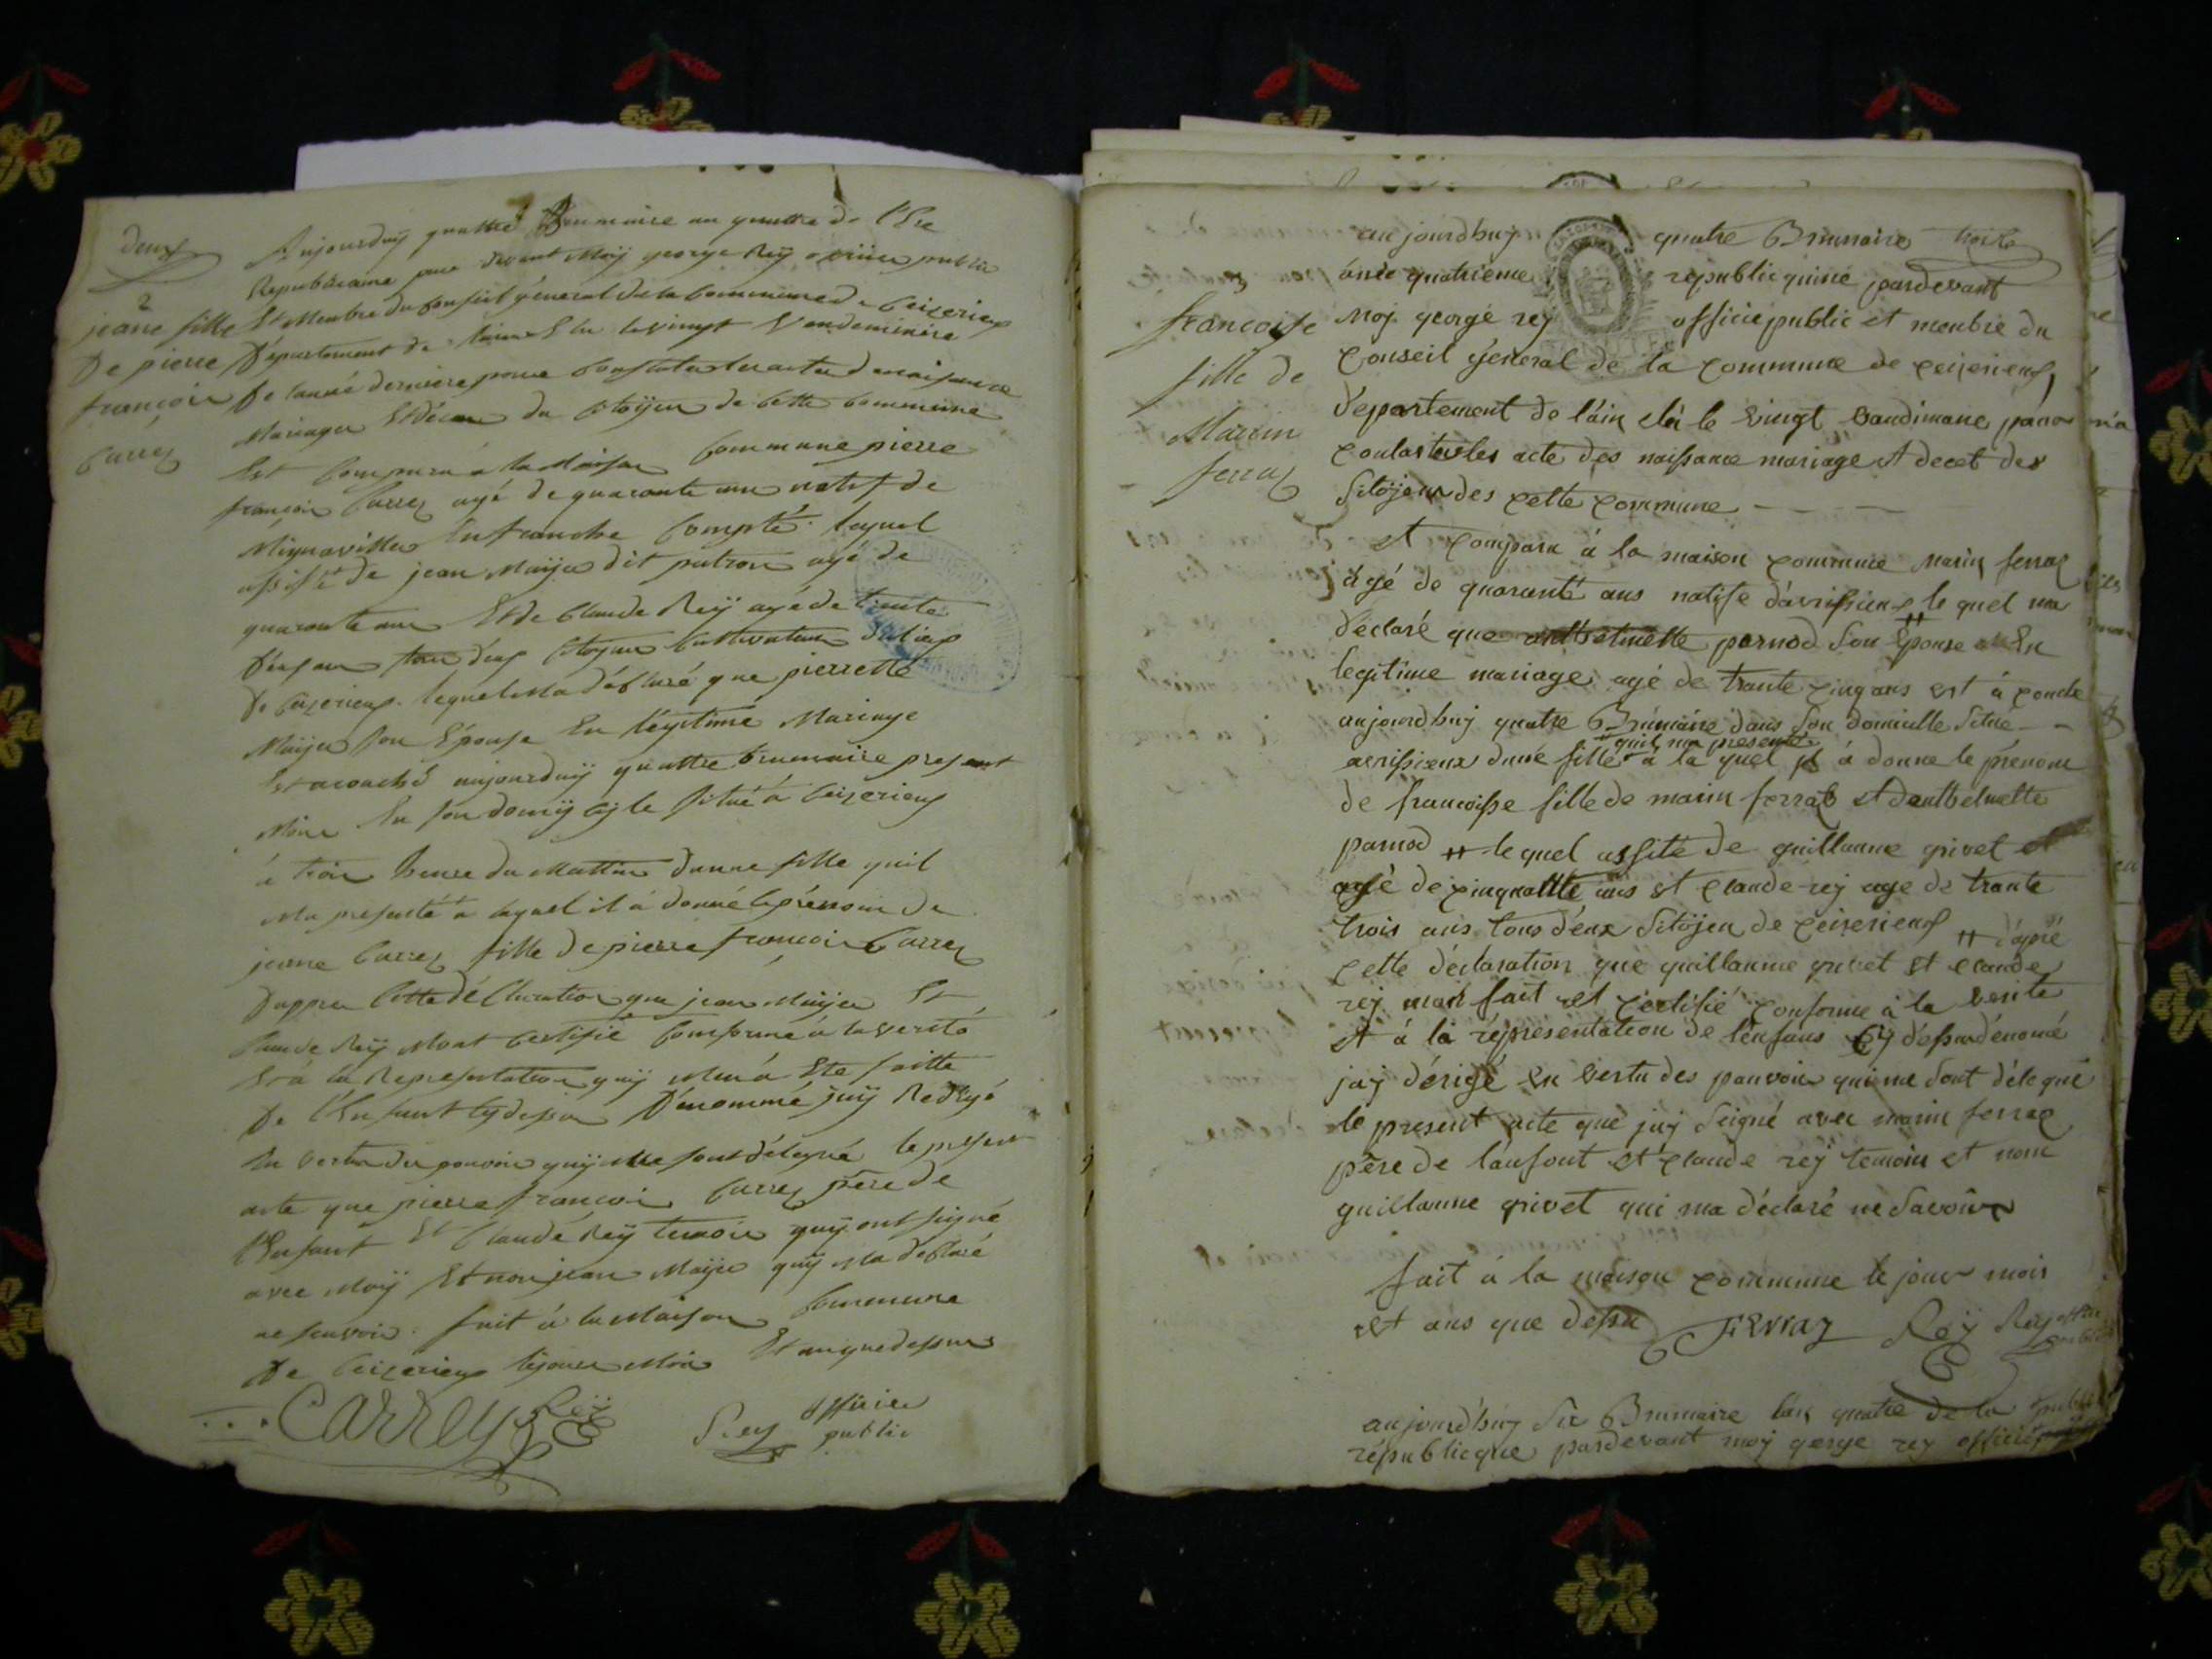 deux
2
jeane fille
De pierre
françois
Carrez
Aujourduÿ quattre Brumaire an quattre de l'Ere
Republicaine pare devant Moÿ george Reÿ officier public
Et Membre du Conseil général de la Commune de Ceizerieux
Département de Elu le vingt Vendemiaire
De lannée derniere poure Constater les actes de naissance
Mariages Et déces des Citoÿens de Cette Commune
Est Comparu a la Maison Commune pierre
françois Carrez agé de quarante ans natif de
En franche Compté lequel
assisté de jean Maÿer dit patron agé de
quarante ans Et de Claude Reÿ agé de trente
deux Citoyens Cultivateurs
De Ceizerieux lequel Ma déClaré que pierrette
Maÿer son Epouse En légitime Mariage
Est acouché aujourduÿ quattre brumaire present
Mois En son domÿcÿle situé á Ceizerieux
á trois heure du Mattin dunne fille quil
Ma presenté á laquel il á donné le prénom de
jeane Carrez fille de pierre françois Carrez
Dappres Cette déClaration que jean Maÿer Et
Claude Reÿ Mont Certifié Comforme á la verité
Et á la Representation quÿ Men á Ete faitte
De l'Enfant Cy dessus Dénommé jaÿ Redigé
En vertu des pouvoirs quÿ Me sont délegué le present
acte que pierre françois Carrez père de
l'Enfant Et Claude Reÿ temoin quÿ ont signé
avec Moÿ Et non jean Maÿer quÿ Ma déClaré
ne scavoir. fait á la Maison Commune
De Ceizerieux le jour Mois Et an que dessus
Carrez Reÿ Rey officier
public
3
françoise
fille de
Marin
ferraz
aujourdhuy quatre Brumaire troize
année quatrieme republiquine pardevant
Moy george rey officie public et menbre du
Conseil géneral de la Commune de Ceizerieux
département de l'ain elû le vingt vandimane pour
Conlaster les acte des naissance mariage et decet des
Sitöjen des Cette Commune
et Comparu à la maison Commune Marin ferraz
agé de quarante ans natife d'avrissieux le quel ma
déclaré que anthelmette pernod Son Epouse En
legitime mariage agé de trante Cinq ans est à Couche
aujourdhuy quatre Brumaire dans Son domicille Situé
avrissieux dune fille quil ma presenté à la quel il à donne le prénom
de francoisse fille de marin ferraz et danthelmette
pernod # le quel assité de guillaume grivet et
agé de Cinquante ans et Claude rey age de trante
trois ans tous deux Sitöjen de Ceizerieux # d'aprè
Cette déclaration que guillaume grivet et Claude
rey mon fait et Certifié Conforme à la verite
et à la réprésentation de l'enfans Cy déssu dénomé
jay dérigé en vertu des pouvoir qui me Sont délegué
le present acte que jay Seigné avec marin ferraz
père de lanfont et Claude reÿ temoin et nom
guillaume grivet qui ma déclaré ne Savoir
fait à la maison Commune le jour mois
et ans que dessu Ferraz Reÿ Rey officier
public
aujourdhuy Six Brumaire lan quatre de la
républicque pardevant moy gerge rey officié